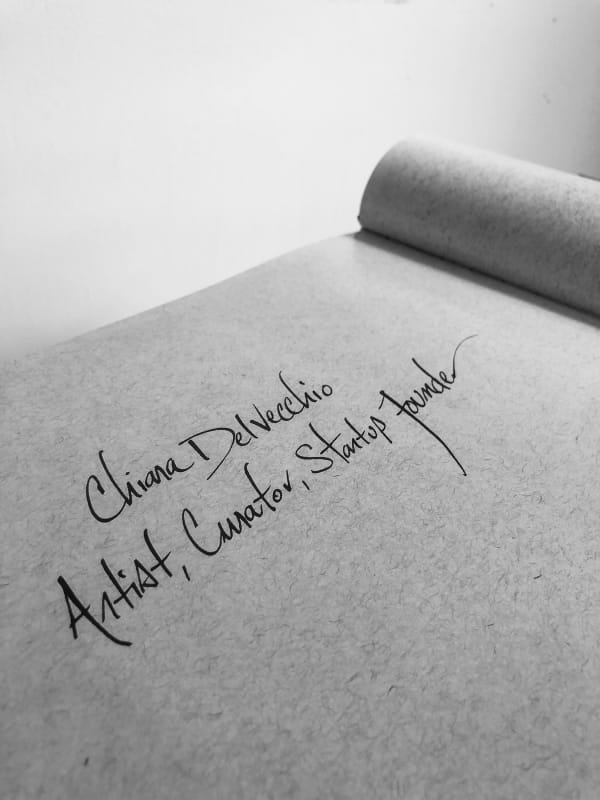 Chiara Delvecchio
Artist, Curator, Startup founder